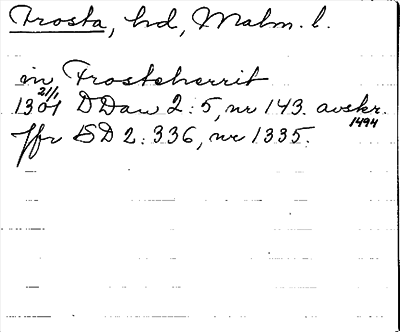 Frosta, hd, Malm. l.
in Frosteherrit
21/1
1301 DDan 2:5, nr 143. avskr.
1494
jfr SD 2:336, nr 1335.